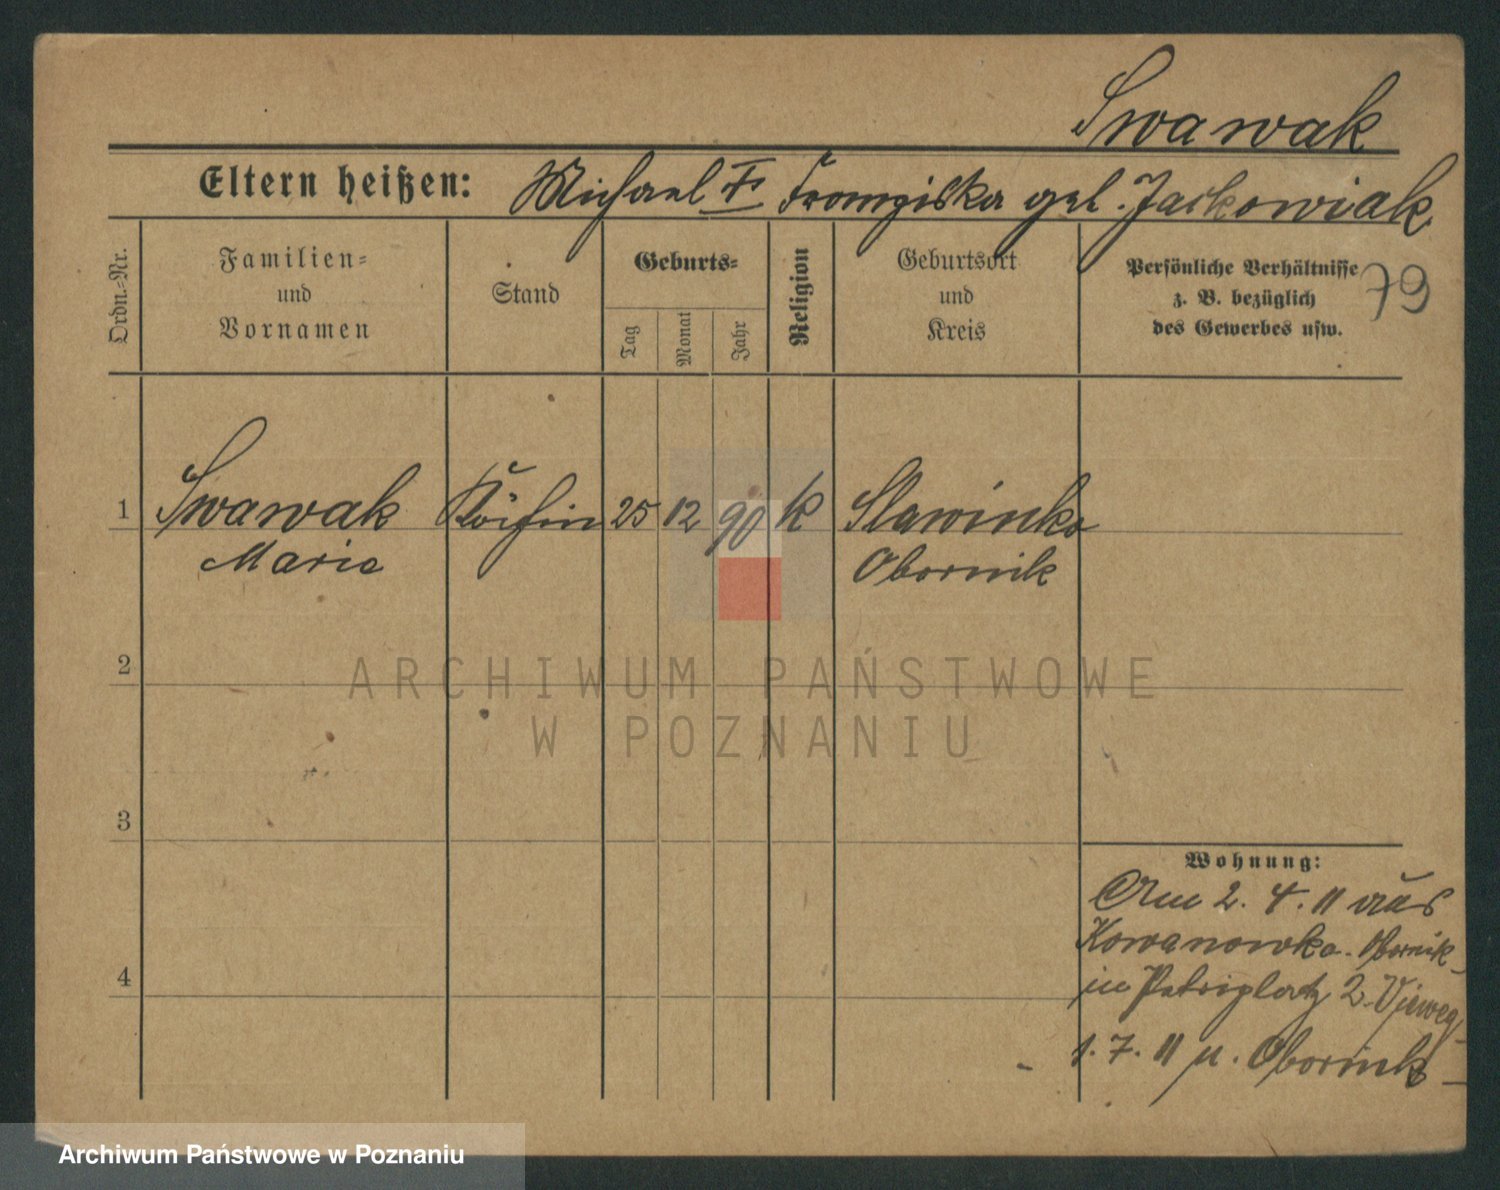 Swawak
Eltern heißen: Michael F Franziska geb. Jackowiak
Ordn.-Nr.
Familien-
und
Vornamen
Stand
Geburts-
Tag
Monat
Jahr
Religion
Geburtsort
und
Kreis
Persönliche Verhältnisse
z. B. bezüglich
des Gewerbes usw.
79
1 Swawak Köchin 25 12 90 k Slawinko
Marie Obornik
2
ARCHIWUM PAŃSTWOWE
W POZNANIU
3
Wohnung:
Am 2. 4. 11 aus
Kowanowko. Obornik
4
in Petriplatz 2. Vieweg
1. 7. 11 n. Obornik
Archiwum Państwowe w Poznaniu